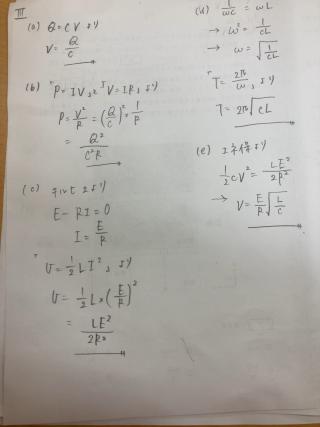 III
(a) Q = CV より
V = Q/C
(b) "P = IV", "V = IR", より
P = V²/R = (Q/C)² × 1/R
= Q²/C²R
(c) キルヒ2より
E - RI = 0
I = E/R
"U = 1/2 LI²", より
U = 1/2 L × (E/R)²
= LE²/2R²
(d) 1/ωC = ωL
→ ω² = 1/CL
→ ω = √(1/CL)
"T = 2π/ω", より
T = 2π√CL
(e) エネ保より
1/2 CV² = LE²/2R²
→ V = E/R √(L/C)